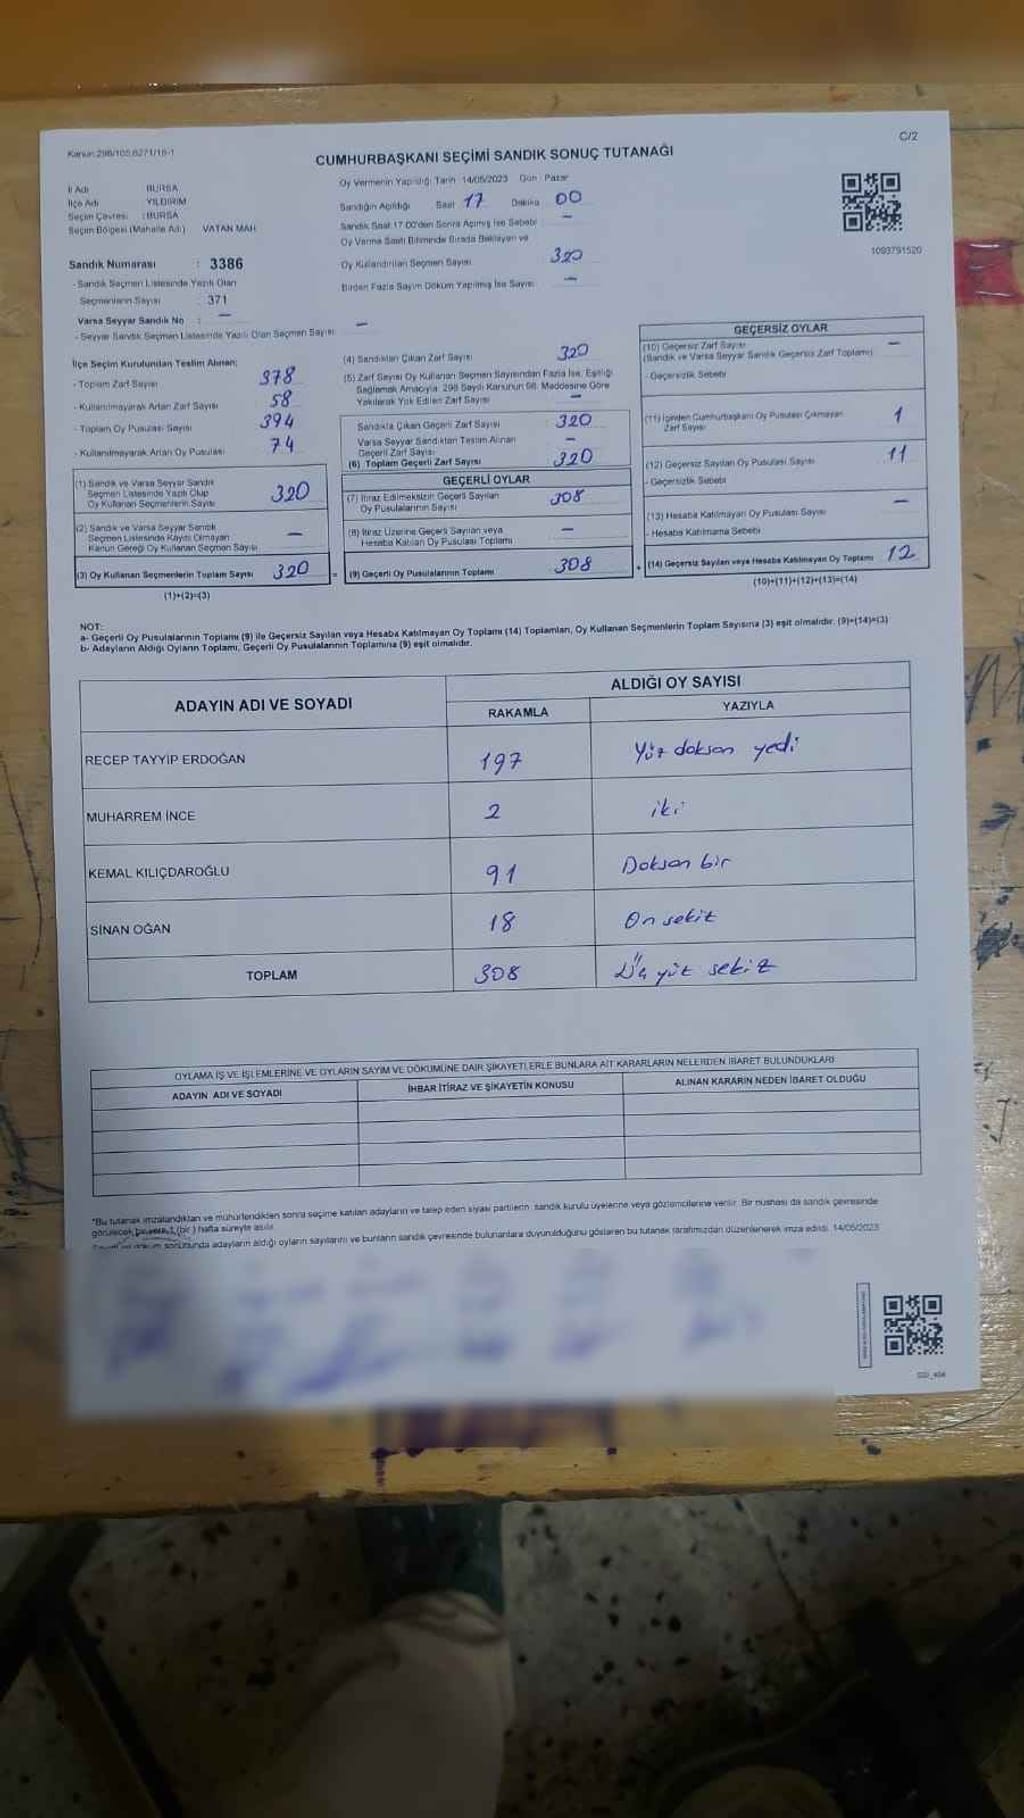 Kanun:298/105,6271/16-1
C/2
CUMHURBAŞKANI SEÇİMİ SANDIK SONUÇ TUTANAĞI
İl Adı : BURSA
İlçe Adı : YILDIRIM
Seçim Çevresi : BURSA
Seçim Bölgesi (Mahalle Adı) VATAN MAH.
Sandık Numarası : 3386
- Sandık Seçmen Listesinde Yazılı Olan
Seçmenlerin Sayısı : 371
Varsa Seyyar Sandık No : —
- Seyyar Sandık Seçmen Listesinde Yazılı Olan Seçmen Sayısı —
Oy Vermenin Yapıldığı Tarih :14/05/2023 Gün : Pazar
Sandığın Açıldığı Saat 17 Dakika 00
Sandık Saat 17:00'den Sonra Açılmış İse Sebebi —
Oy Verme Saati Bitiminde Sırada Bekleyen ve
Oy Kullandırılan Seçmen Sayısı 320
Birden Fazla Sayım Döküm Yapılmış İse Sayısı —
1093791520
İlçe Seçim Kurulundan Teslim Alınan;
- Toplam Zarf Sayısı 378
- Kullanılmayarak Artan Zarf Sayısı 58
- Toplam Oy Pusulası Sayısı 394
- Kullanılmayarak Artan Oy Pusulası 74
(1) Sandık ve Varsa Seyyar Sandık
Seçmen Listesinde Yazılı Olup
Oy Kullanan Seçmenlerin Sayısı 320
(2) Sandık ve Varsa Seyyar Sandık
Seçmen Listesinde Kaydı Olmayan
Kanun Gereği Oy Kullanan Seçmen Sayısı —
(3) Oy Kullanan Seçmenlerin Toplam Sayısı 320
(1)+(2)=(3)
(4) Sandıktan Çıkan Zarf Sayısı 320
(5) Zarf Sayısı Oy Kullanan Seçmen Sayısından Fazla İse, Eşitliği
Sağlamak Amacıyla, 298 Sayılı Kanunun 98. Maddesine Göre
Yakılarak Yok Edilen Zarf Sayısı —
Sandıkta Çıkan Geçerli Zarf Sayısı 320
Varsa Seyyar Sandıktan Teslim Alınan
Geçerli Zarf Sayısı —
(6) Toplam Geçerli Zarf Sayısı 320
GEÇERLİ OYLAR
(7) İtiraz Edilmeksizin Geçerli Sayılan
Oy Pusulalarının Sayısı 308
(8) İtiraz Üzerine Geçerli Sayılan veya
Hesaba Katılan Oy Pusulası Toplamı —
= (9) Geçerli Oy Pusulalarının Toplamı 308
GEÇERSİZ OYLAR
(10) Geçersiz Zarf Sayısı —
(Sandık ve Varsa Seyyar Sandık Geçersiz Zarf Toplamı)
- Geçersizlik Sebebi
(11) İçinden Cumhurbaşkanı Oy Pusulası Çıkmayan
Zarf Sayısı 1
(12) Geçersiz Sayılan Oy Pusulası Sayısı 11
- Geçersizlik Sebebi
(13) Hesaba Katılmayan Oy Pusulası Sayısı —
- Hesaba Katılmama Sebebi
+ (14) Geçersiz Sayılan veya Hesaba Katılmayan Oy Toplamı 12
(10)+(11)+(12)+(13)=(14)
NOT:
a- Geçerli Oy Pusulalarının Toplamı (9) ile Geçersiz Sayılan veya Hesaba Katılmayan Oy Toplamı (14) Toplamları, Oy Kullanan Seçmenlerin Toplam Sayısına (3) eşit olmalıdır. (9)+(14)=(3)
b- Adayların Aldığı Oyların Toplamı, Geçerli Oy Pusulalarının Toplamına (9) eşit olmalıdır.
ADAYIN ADI VE SOYADI ALDIĞI OY SAYISI
RAKAMLA YAZIYLA
RECEP TAYYİP ERDOĞAN 197 Yüz doksan yedi
MUHARREM İNCE 2 iki
KEMAL KILIÇDAROĞLU 91 Doksan bir
SİNAN OĞAN 18 On sekiz
TOPLAM 308 Üç yüz sekiz
OYLAMA İŞ VE İŞLEMLERİNE VE OYLARIN SAYIM VE DÖKÜMÜNE DAİR ŞİKAYETLERLE BUNLARA AİT KARARLARIN NELERDEN İBARET BULUNDUKLARI
ADAYIN ADI VE SOYADI İHBAR İTİRAZ VE ŞİKAYETİN KONUSU ALINAN KARARIN NEDEN İBARET OLDUĞU
*Bu tutanak imzalandıktan ve mühürlendikten sonra seçime katılan adayların ve talep eden siyasi partilerin, sandık kurulu üyelerine veya gözlemcilerine verilir. Bir nüshası da sandık çevresinde
görülecek bir yere 1 (bir) hafta süreyle asılır.
sonucunda adayların aldığı oyların sayılarını ve bunların sandık çevresinde bulunanlara duyurulduğunu gösteren bu tutanak tarafımızdan düzenlenerek imza edildi. 14/05/2023